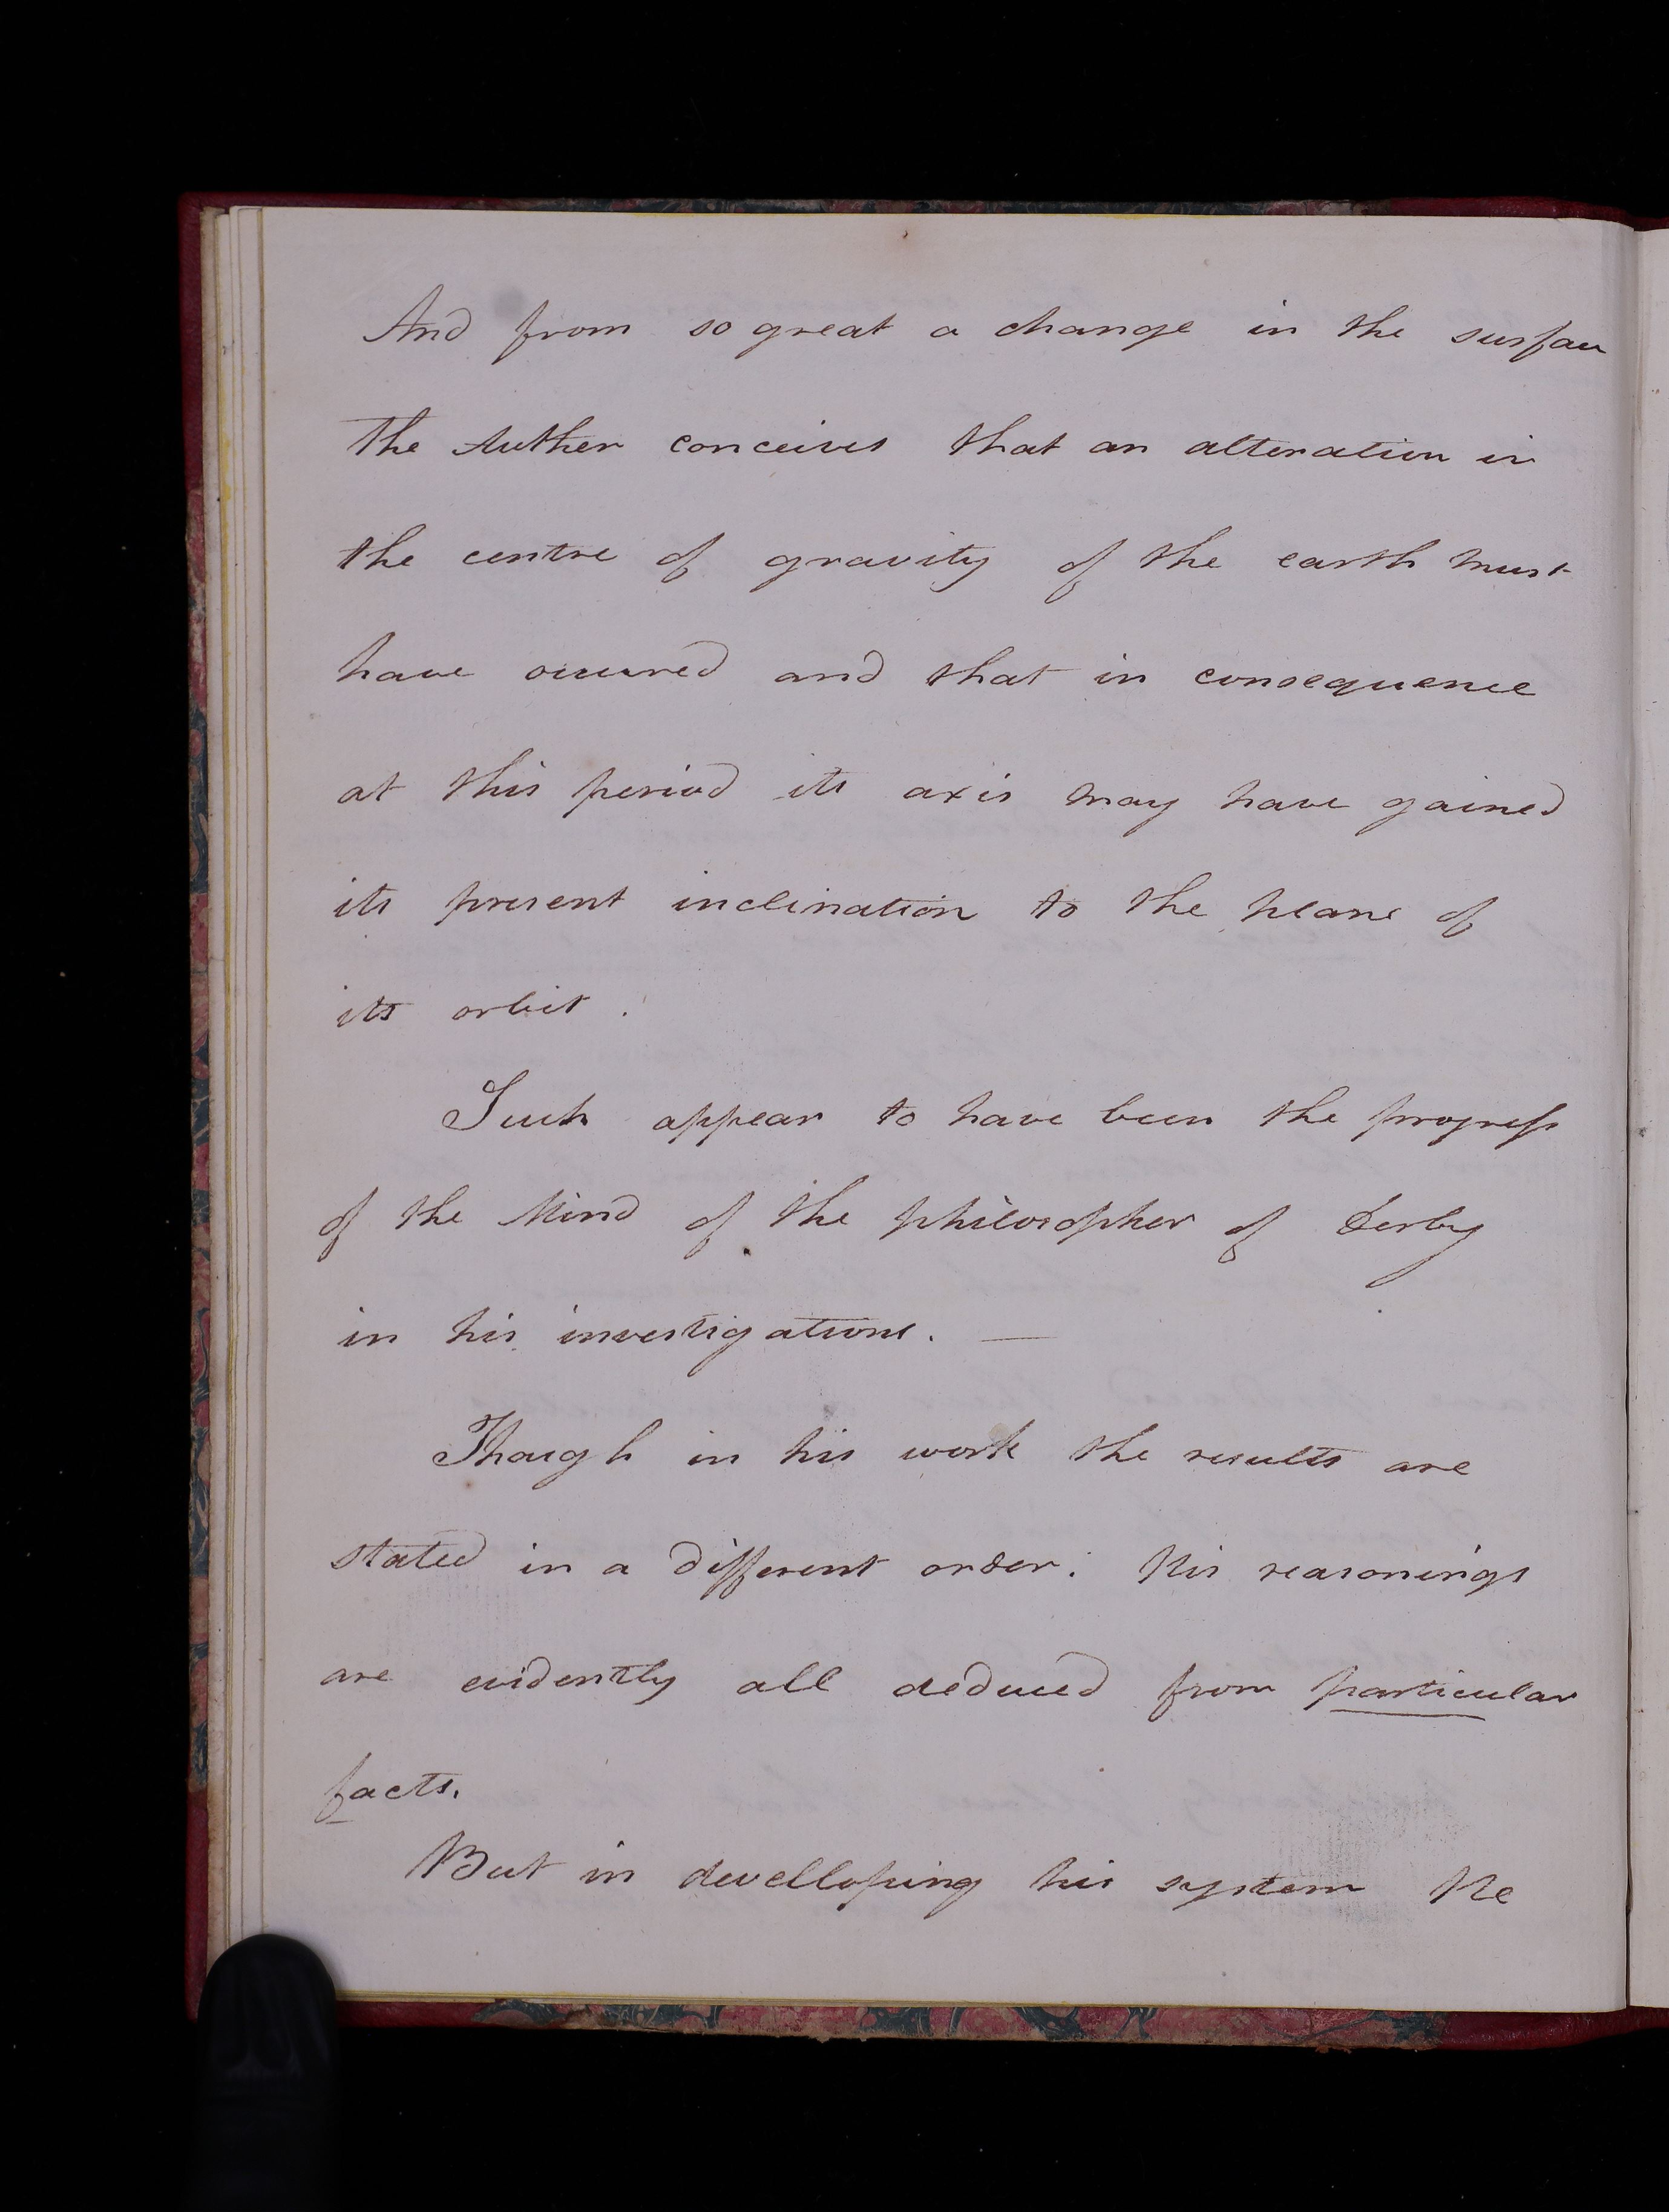 And from so great a change in the surface
The Auther conceives that an alteration in
the centre of gravity of the earth must
have occured and that in consequence
at this period its axis may have gained
its present inclination to the plane of
its orbit.
Such appear to have been the progress
of the Mind of the philosopher of Derby
in his investigations. —
Though in his work the results are
stated in a different order. His reasonings
are evidently all deduced from particular
facts.
But in develloping his system He